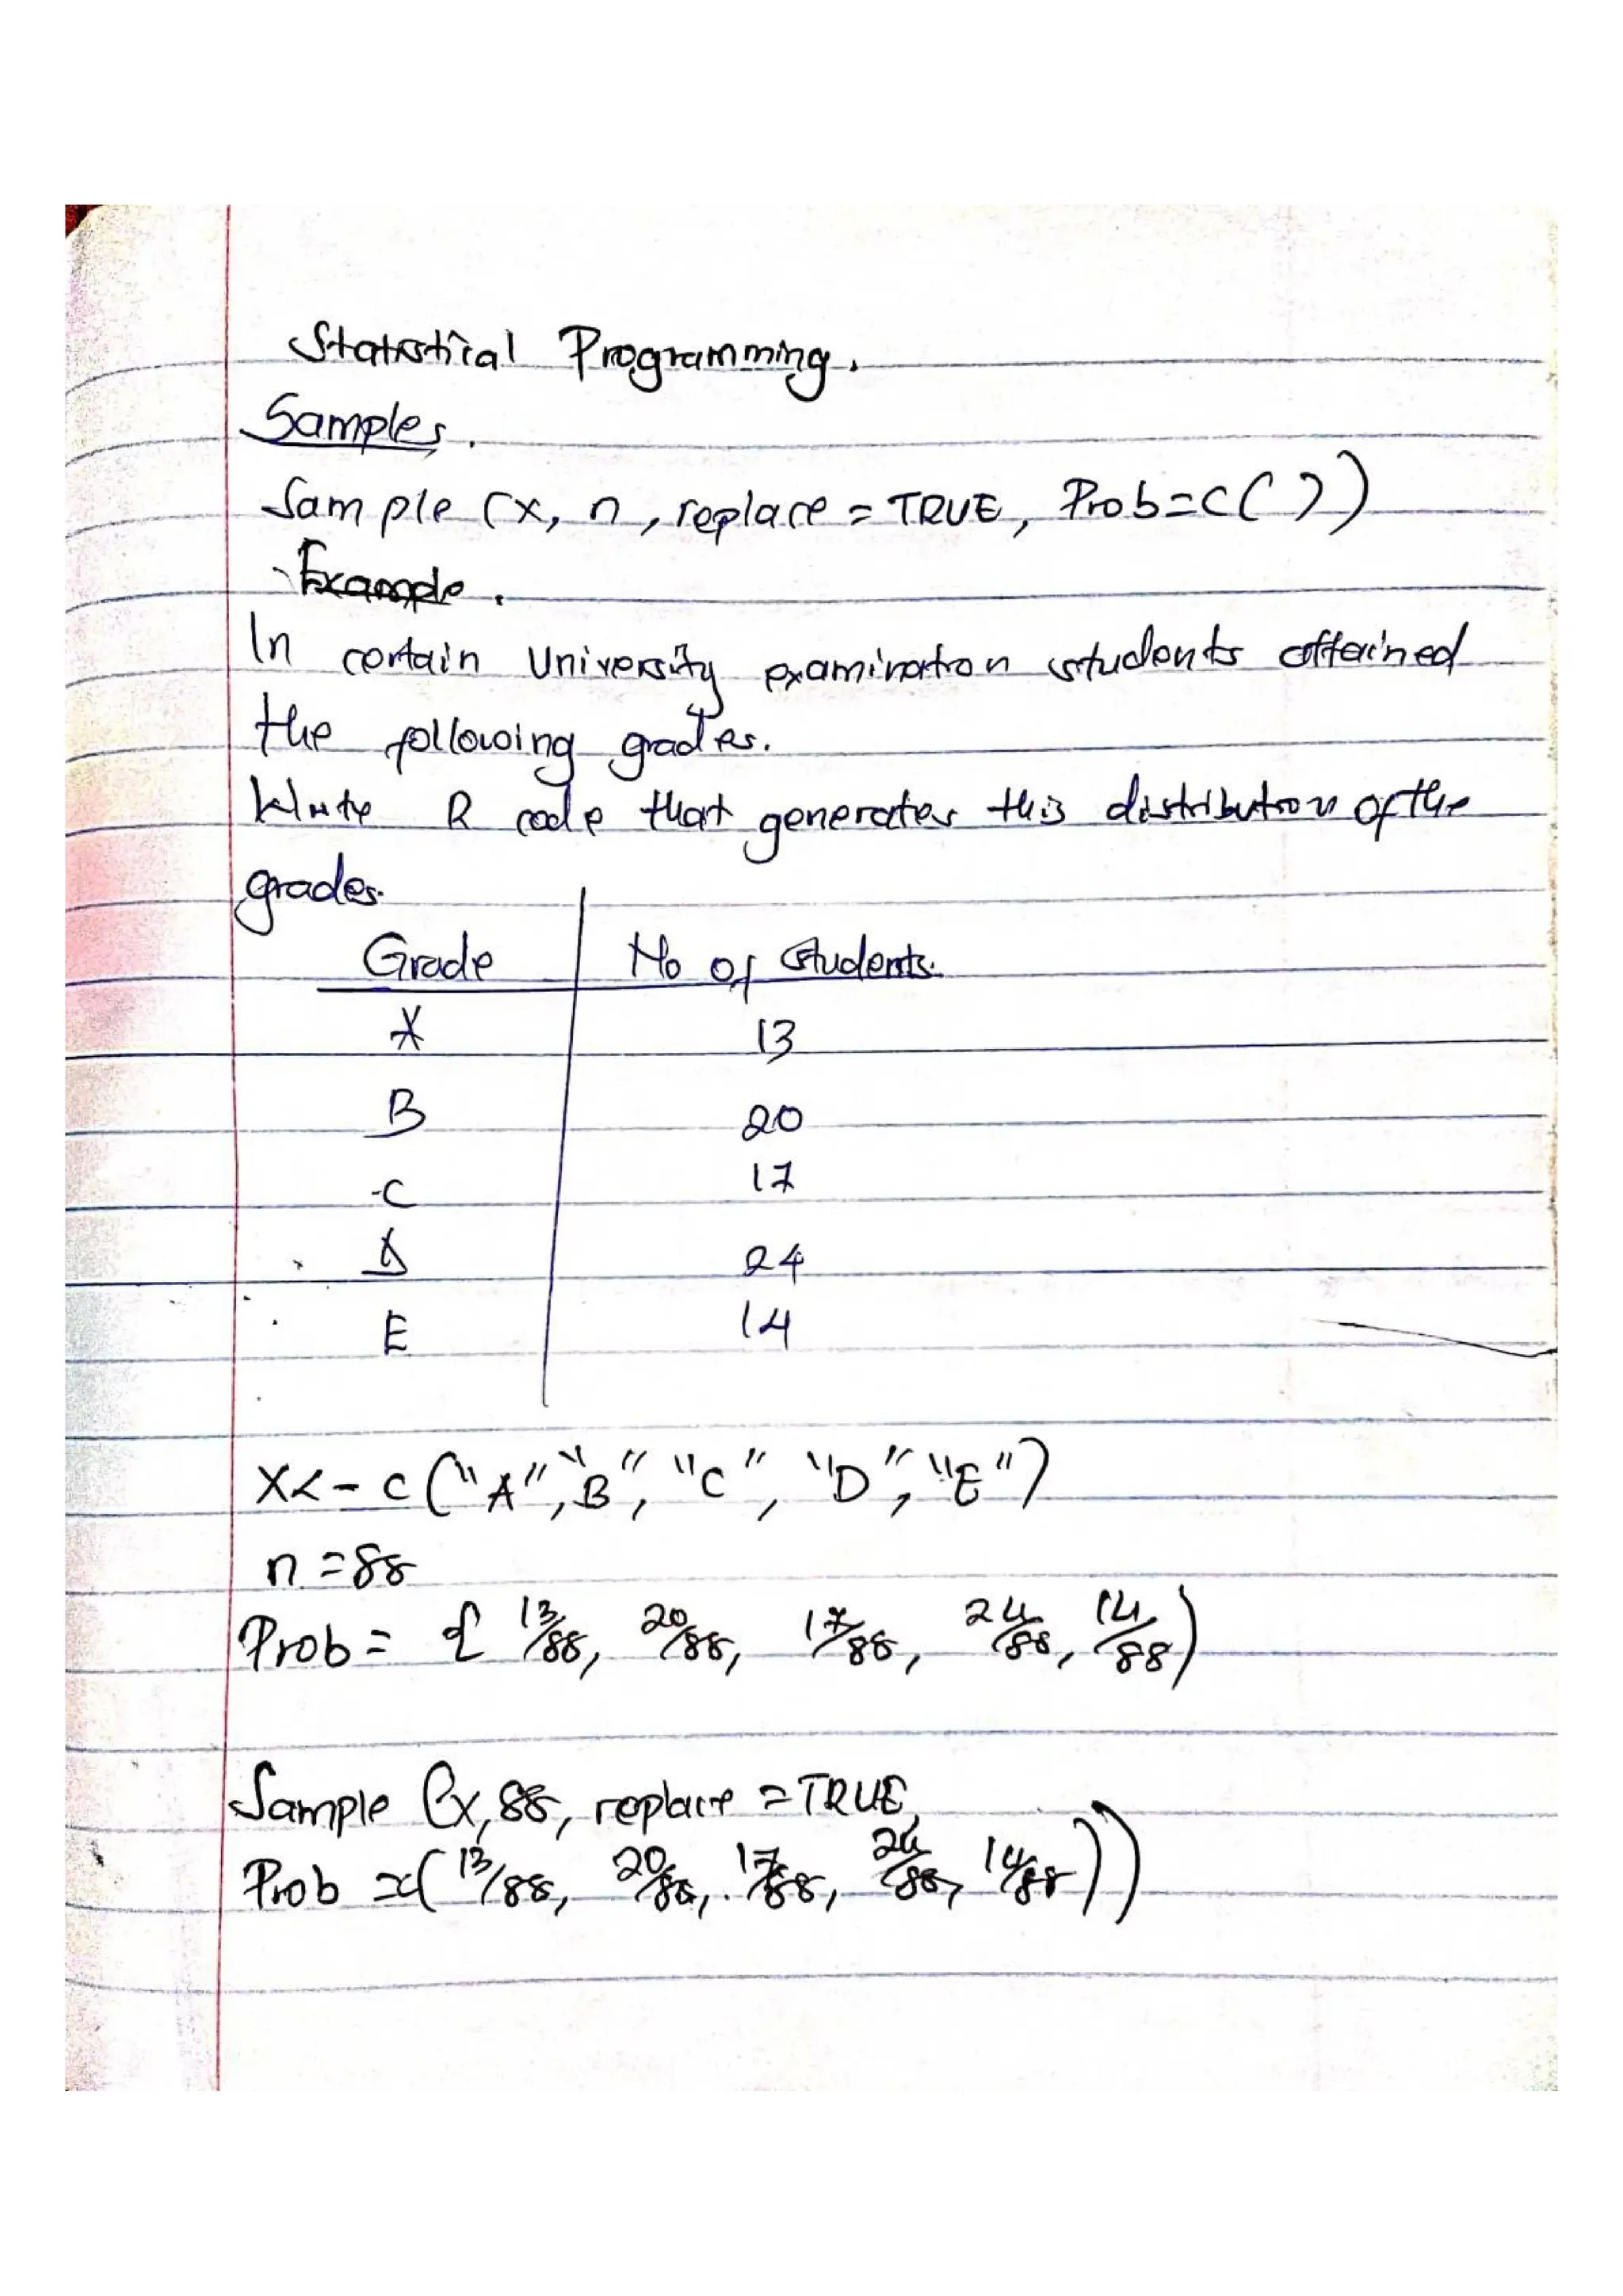 Statistical Programming.
Samples.
Sample (x, n, replace = TRUE, Prob=c( ))
Example.
In certain University examination students attained
the following grades.
Write R code that generates this distribution of the
grades.
Grade No of Students.
A 13
B 20
C 17
D 24
E 14
X<- c("A", "B", "C", "D", "E")
n = 88
Prob = { 13/88, 20/88, 17/88, 24/88, 14/88)
Sample (x, 88, replace = TRUE,
Prob =c( 13/88, 20/88, 17/88, 24/88, 14/88))